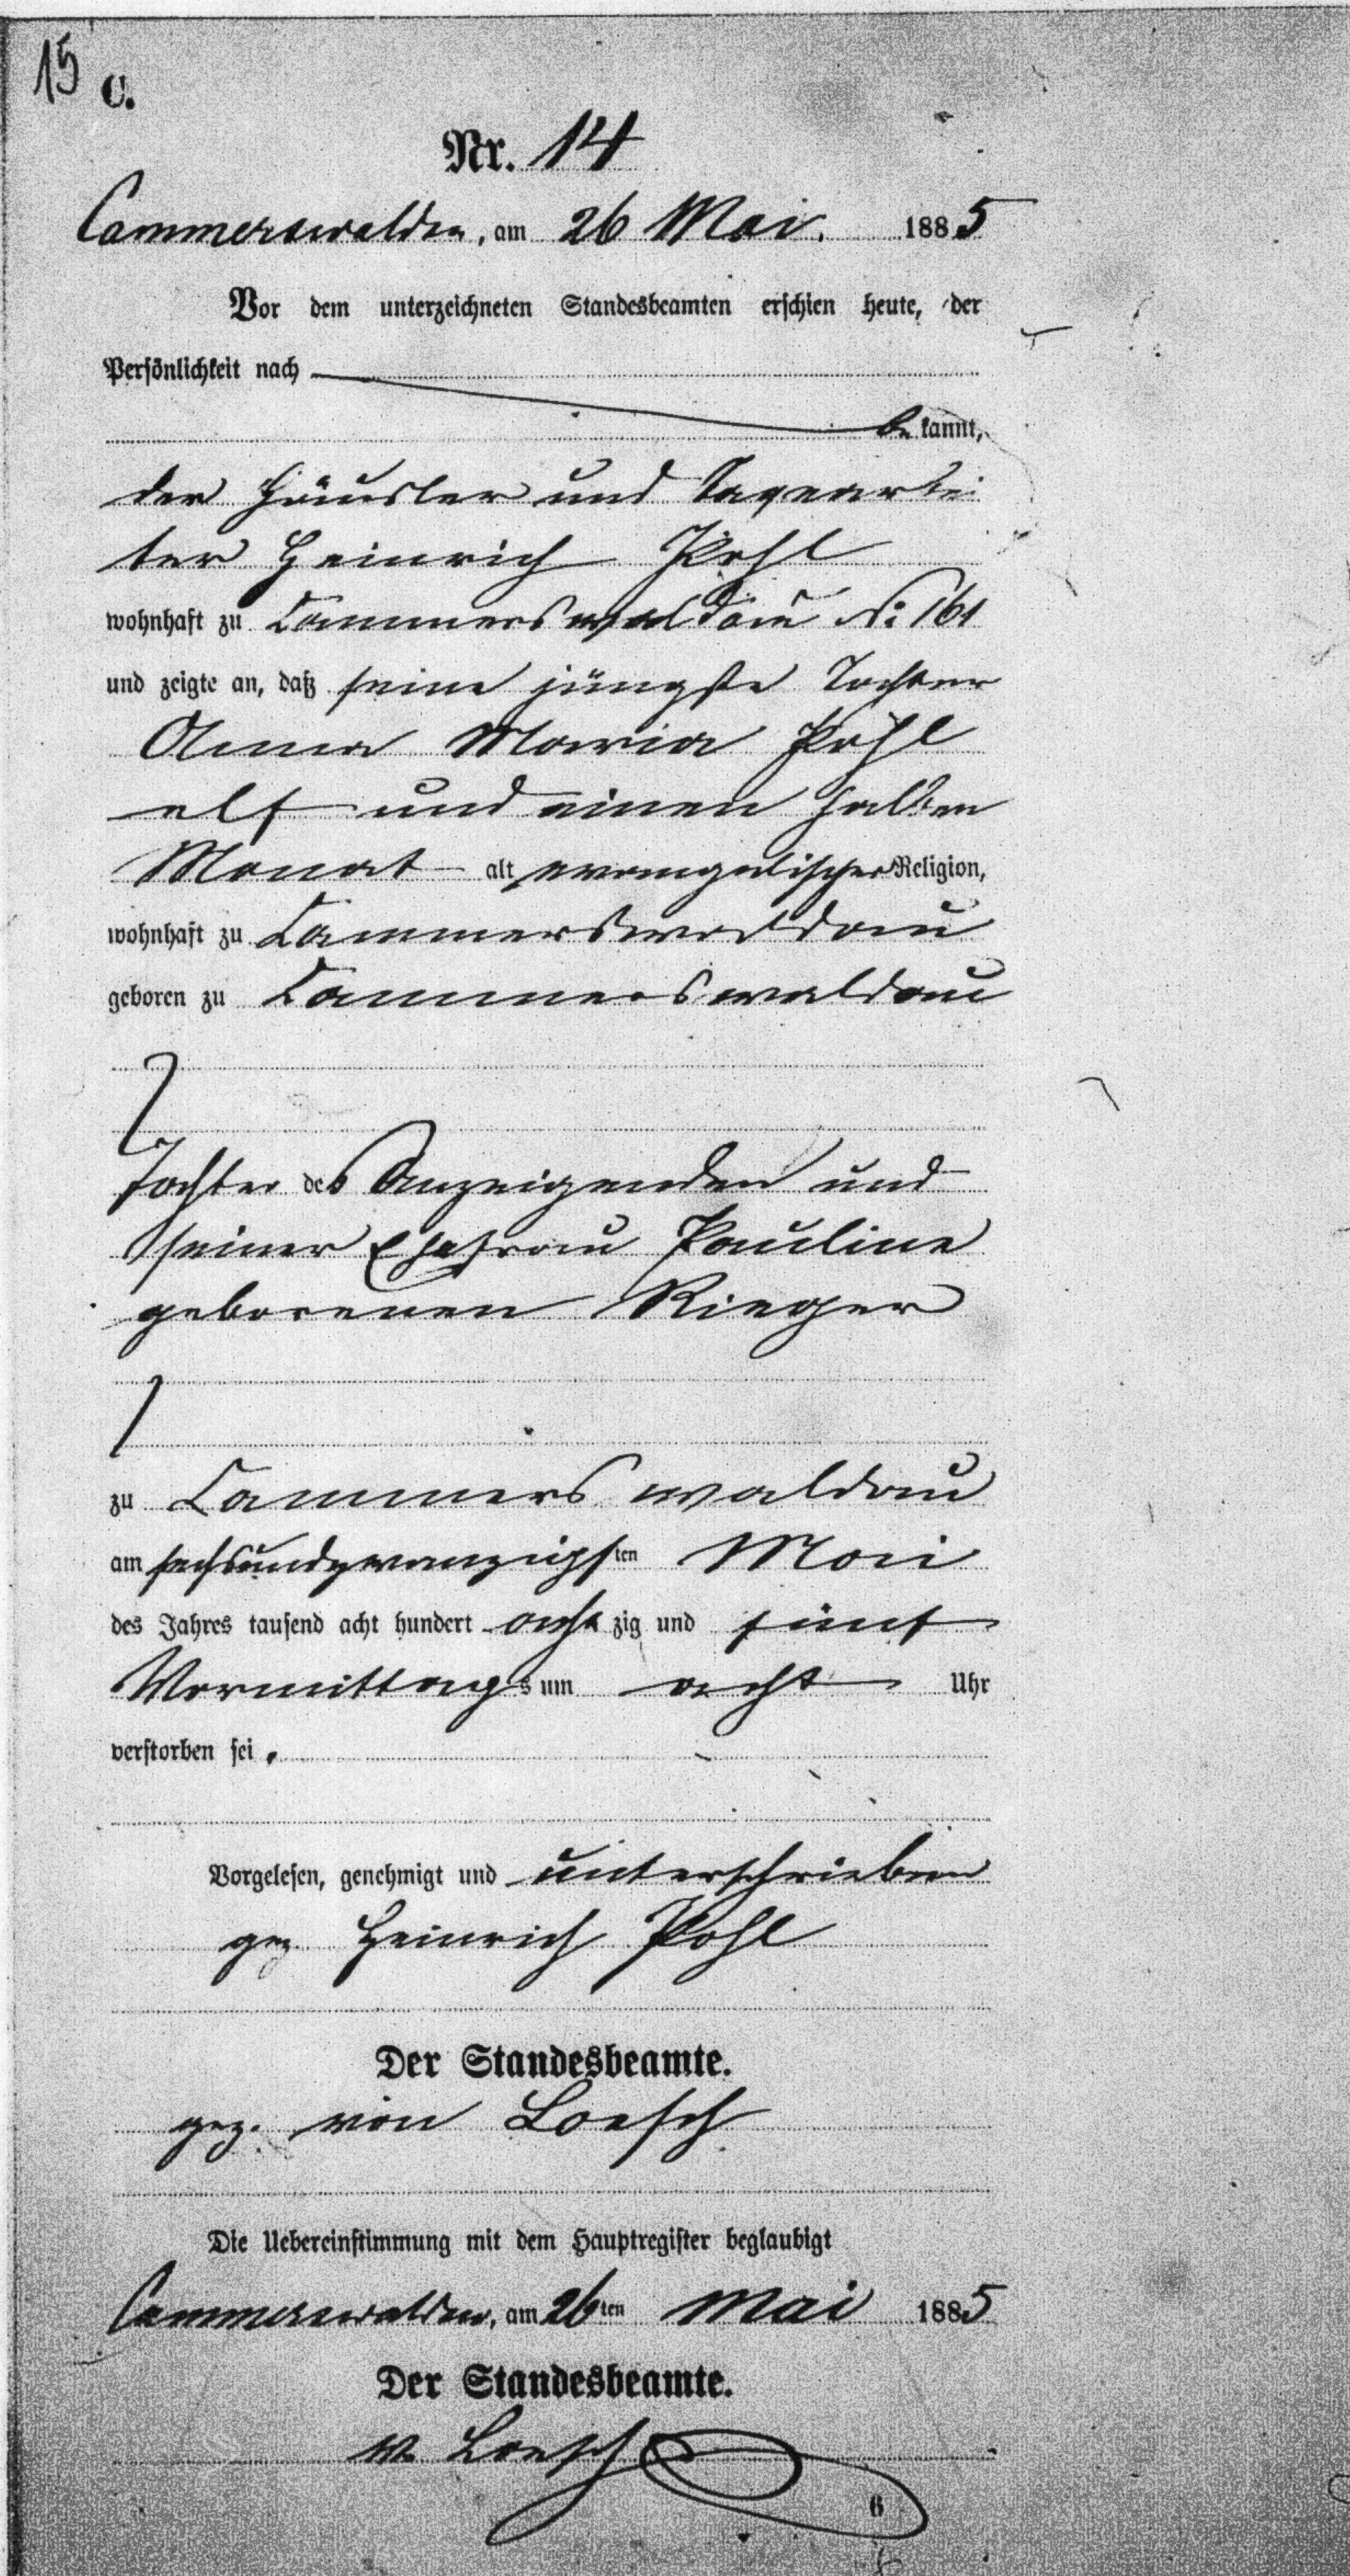 15
C.
Nr. 14
Cammerswaldau, am 26 Mai. 1885
Vor dem unterzeichneten Standesbeamten erschien heute, der
Persönlichkeit nach
be kannt,
der Häusler und Tagearbei
ter Heinrich Pohl
wohnhaft zu Cammerswaldau No 161
und zeigte an, daß seine jüngste Tochter
Anna Maria Pohl
elf und einen halben
Monat alt, evangelischer Religion,
wohnhaft zu Cammerswaldau
geboren zu Cammerswaldau
Tochter des Anzeigenden und
seiner Ehefrau Pauline
geborenen Rieger
zu Cammerswaldau
am sechsundzwanzigsten Mai
des Jahres tausend acht hundert acht zig und fünf
Vormittags um acht Uhr
verstorben sei.
Vorgelesen, genehmigt und unterschrieben
gez. Heinrich Pohl
Der Standesbeamte.
gez. von Loesch
Die Uebereinstimmung mit dem Hauptregister beglaubigt
Cammerswaldau, am 26ten Mai 1885
Der Standesbeamte.
v. Loesch
6